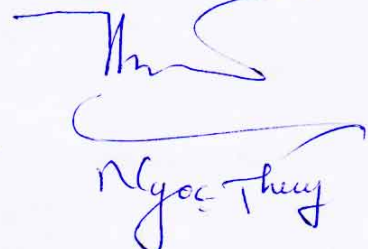 Ngọc Thuý